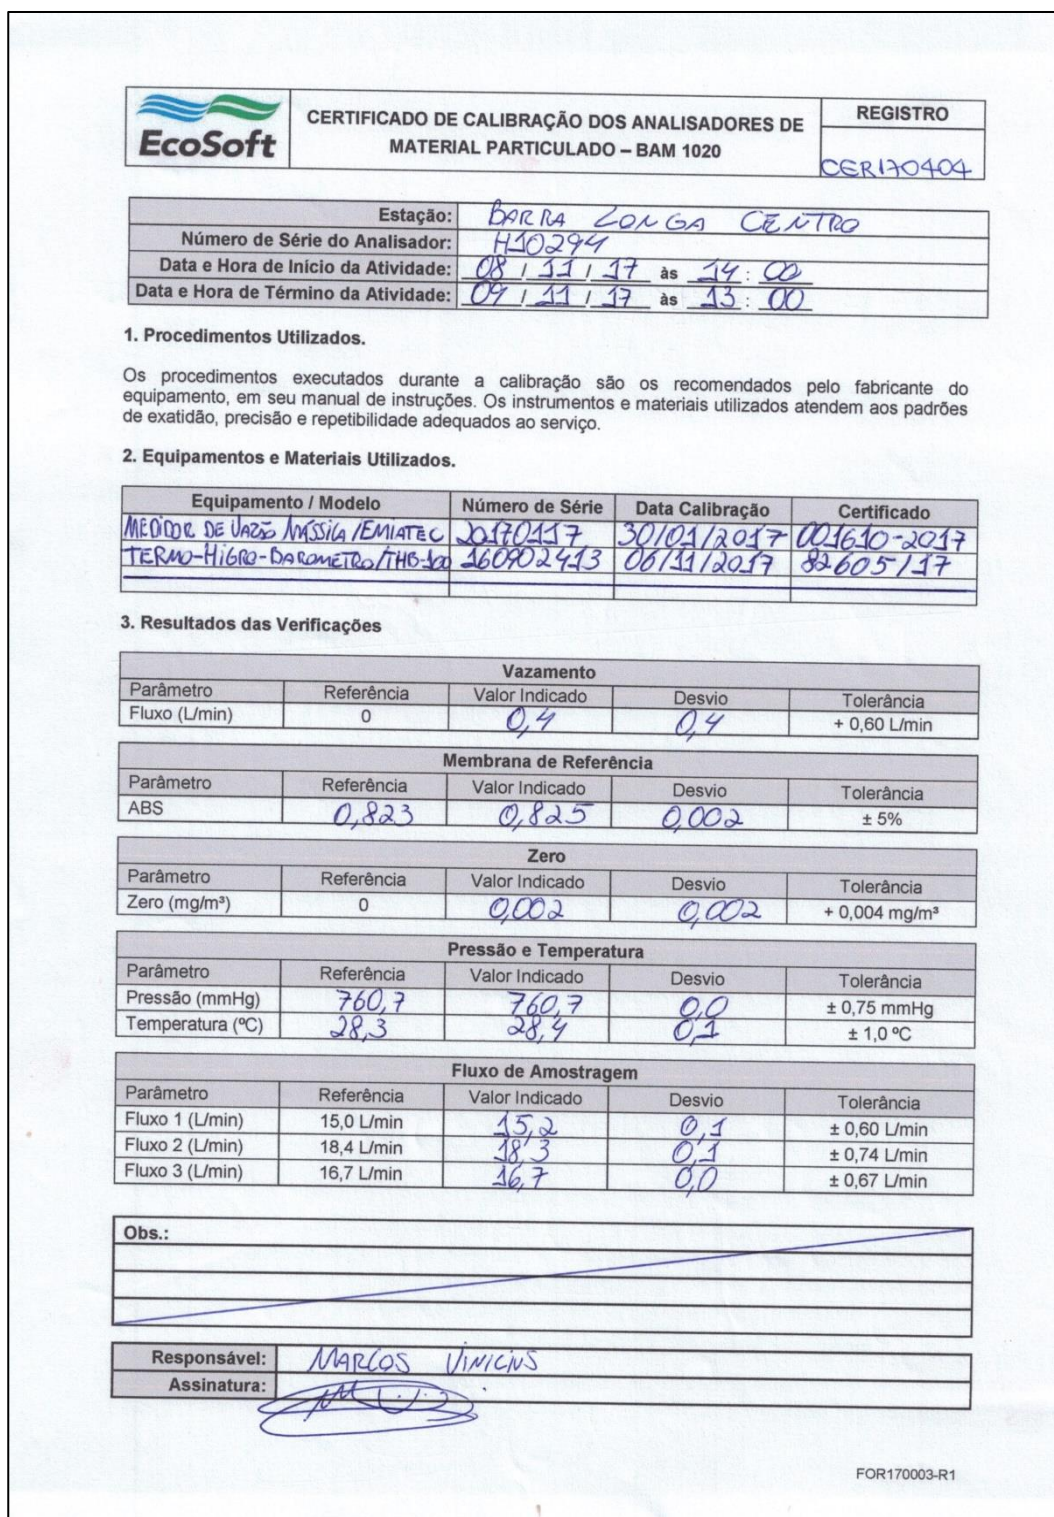 EcoSoft
CERTIFICADO DE CALIBRAÇÃO DOS ANALISADORES DE
MATERIAL PARTICULADO – BAM 1020
REGISTRO
CER170404
Estação: BARRA LONGA CENTRO
Número de Série do Analisador: H10294
Data e Hora de Início da Atividade: 08 / 11 / 17 às 14 : 00
Data e Hora de Término da Atividade: 09 / 11 / 17 às 13 : 00
1. Procedimentos Utilizados.
Os procedimentos executados durante a calibração são os recomendados pelo fabricante do
equipamento, em seu manual de instruções. Os instrumentos e materiais utilizados atendem aos padrões
de exatidão, precisão e repetibilidade adequados ao serviço.
2. Equipamentos e Materiais Utilizados.
Equipamento / Modelo Número de Série Data Calibração Certificado
MEDIDOR DE VAZÃO MÁSSICA / EMIATEC 20170117 30/01/2017 001610-2017
TERMO-HIGRO-BAROMETRO/THB-100 160902413 06/11/2017 82605/17
3. Resultados das Verificações
Vazamento
Parâmetro Referência Valor Indicado Desvio Tolerância
Fluxo (L/min) 0 0,4 0,4 + 0,60 L/min
Membrana de Referência
Parâmetro Referência Valor Indicado Desvio Tolerância
ABS 0,823 0,825 0,002 ± 5%
Zero
Parâmetro Referência Valor Indicado Desvio Tolerância
Zero (mg/m³) 0 0,002 0,002 + 0,004 mg/m³
Pressão e Temperatura
Parâmetro Referência Valor Indicado Desvio Tolerância
Pressão (mmHg) 760,7 760,7 0,0 ± 0,75 mmHg
Temperatura (ºC) 28,3 28,4 0,1 ± 1,0 ºC
Fluxo de Amostragem
Parâmetro Referência Valor Indicado Desvio Tolerância
Fluxo 1 (L/min) 15,0 L/min 15,2 0,1 ± 0,60 L/min
Fluxo 2 (L/min) 18,4 L/min 18,3 0,1 ± 0,74 L/min
Fluxo 3 (L/min) 16,7 L/min 16,7 0,0 ± 0,67 L/min
Obs.:
Responsável: MARCOS VINICIUS
Assinatura:
FOR170003-R1